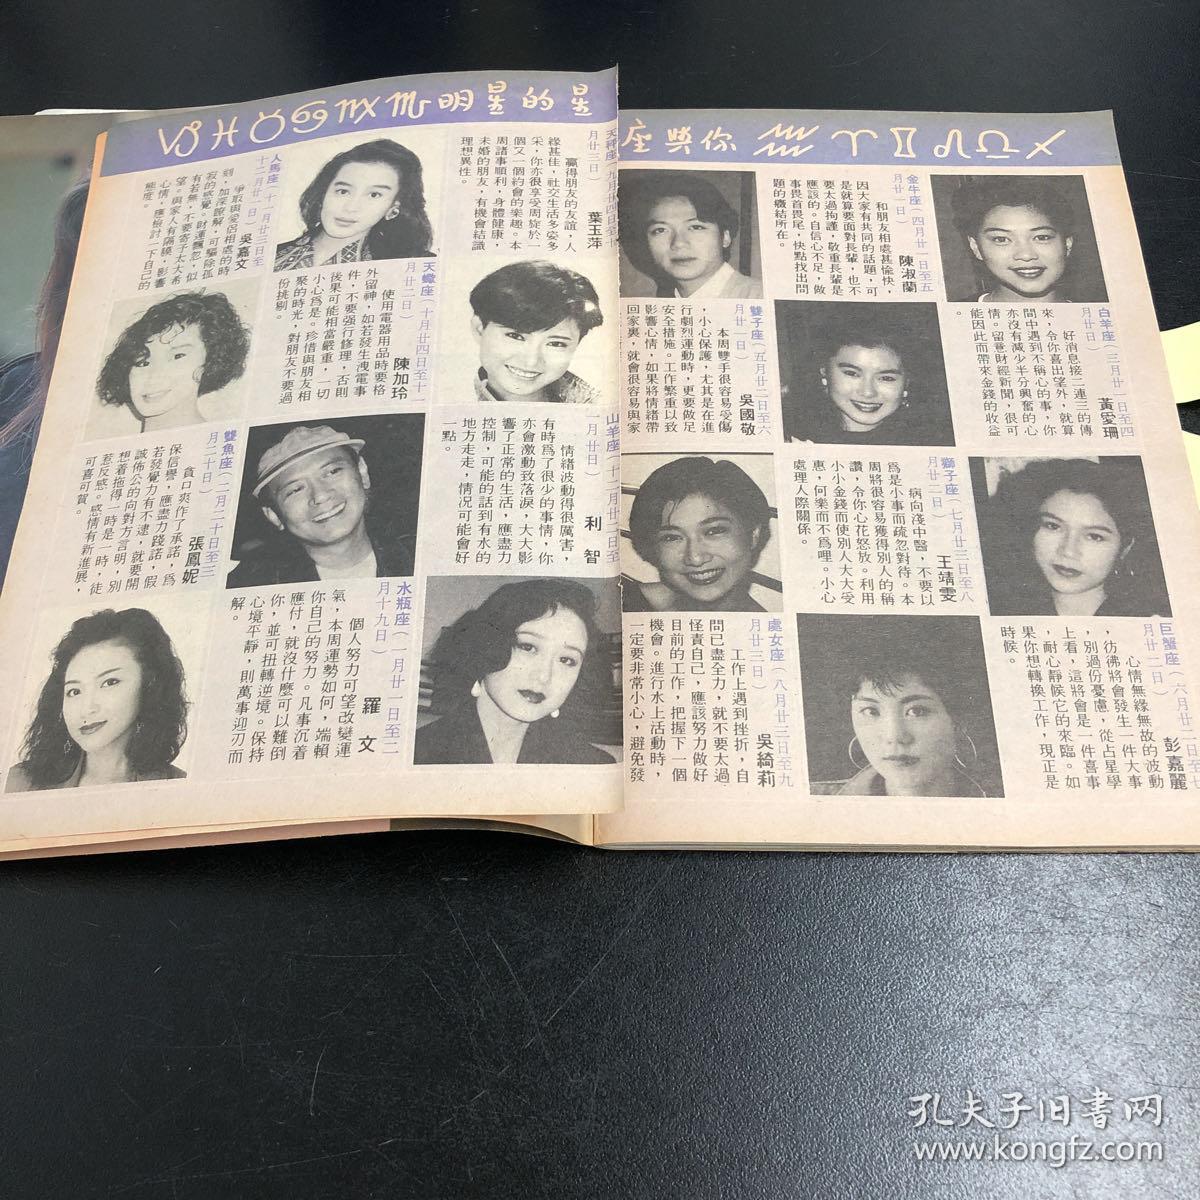 明星的星
座與你
白羊座（三月廿一日至四
月廿日）
黃愛珊
好消息接二連三的傳
來，令你喜出望外，就算
間中遇到不稱心的事，你
亦沒有減少半分興奮的心
情。留意財經新聞，很可
能因此而帶來金錢的收益
。
金牛座（四月廿一日至五
月廿一日）
陳淑蘭
和朋友相處甚愉快，
因大家有共同的話題，可
是就算要面對長輩，也不
要太過拘謹，敬重長輩是
應該的。自信心不足，做
事畏首畏尾，快點找出問
題的癥結所在。
雙子座（五月廿二日至六
月廿一日）
吳國敬
本周雙手很容易受傷
，小心保護，尤其是在進
行劇烈運動時，更要做足
安全措施。工作繁重以致
影響心情，如果將情緒帶
回家裏，就會很容易與家
巨蟹座（六月廿二日至七
月廿二日）
彭嘉麗
心情無緣無故的波動
，彷彿將會發生一件大事
，別過份憂慮，從占星學
上看，這將會是一件喜事
，耐心靜候它的來臨。如
果你想轉換工作，現正是
時候。
獅子座（七月廿三日至八
月廿二日）
王靖雯
病向淺中醫，不要以
爲是小事而疏忽對待。本
周將很容易獲得別人的稱
讚，令你心花怒放。利用
小小金錢而使別人大大受
惠，何樂而不爲哩。小心
處理人際關係。
處女座（八月廿三日至九
月廿三日）
吳綺莉
工作上遇到挫折，自
問已盡全力，就不要太過
怪責自己，應該努力做好
目前的工作，把握下一個
機會。進行水上活動時，
一定要非常小心，避免發
天秤座（九月廿四日至十
月廿三日）
葉玉萍
贏得朋友的友誼，人
緣甚佳，社交生活多姿多
采，你亦很享受周旋於一
個又一個約會的樂趣。本
周諸事順利，身體健康，
未婚的朋友，有機會結識
理想異性。
天蠍座（十月廿四日至十一
月廿二日）
陳加玲
使用電器用品時要格
外留神，如若發生洩電事
件，不要强行修理，否則
後果可能相當嚴重，一切
小心爲是。珍惜與朋友相
聚的時光，對朋友不要過
份挑剔。
人馬座（十一月廿三日至
十二月廿一日）
吳嘉文
爭取與愛侶相處的時
刻，加深瞭解，可驅除孤
寂的感覺。財運飄忽，似
有若無，不要寄予太大希
望。與家人有隔膜，影響
心情，應檢討一下自己的
態度。
山羊座（十二月廿二日至
一月廿日）
利智
情緒波動得很厲害，
有時爲了很少的事情，你
亦會激動致落淚，大大影
響了正常的生活，應盡力
控制，可能的話到有水的
地方走走，情況可能會好
一點。
水瓶座（一月廿一日至二
月十九日）
羅文
個人努力可望改變運
氣，本周運勢如何，端賴
你自己的努力。凡事沉着
應付，就沒什麼可以難倒
你，並可扭轉逆境。保持
心境平靜，則萬事迎刃而
解。
雙魚座（二月二十日至三
月二十日）
張鳳妮
貪口爽作了承諾，爲
保信譽，應盡力踐諾，假
若發覺力有不逮，就要開
誠佈公的向對方言明，別
想着拖得一時是一時，徒
惹反感。感情有新進展，
可喜可賀。
孔夫子旧書网
www.kongfz.com